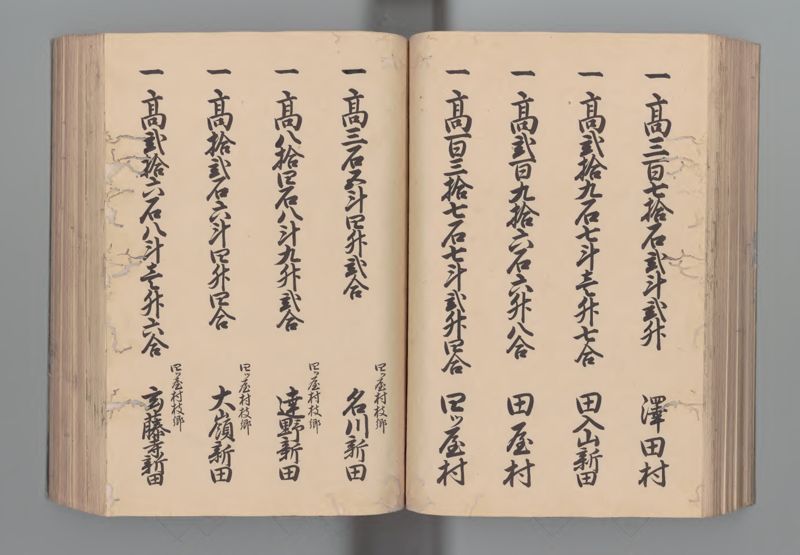 一 高三百七拾石弐斗弐升 澤田村
一 高弐拾九石七斗壱升七合 田入山新田
一 高弐百九拾六石六升八合 田屋村
一 高百三拾七石七斗弐升四合 四ッ屋村
一 高三石五斗四升弐合 四ッ屋村枝郷 名川新田
一 高八拾四石八斗九升弐合 四ッ屋村枝郷 達野新田
一 高拾弐石六斗四升四合 四ッ屋村枝郷 大嶺新田
一 高弐拾六石八斗壱升六合 四ッ屋村枝郷 藤京新田